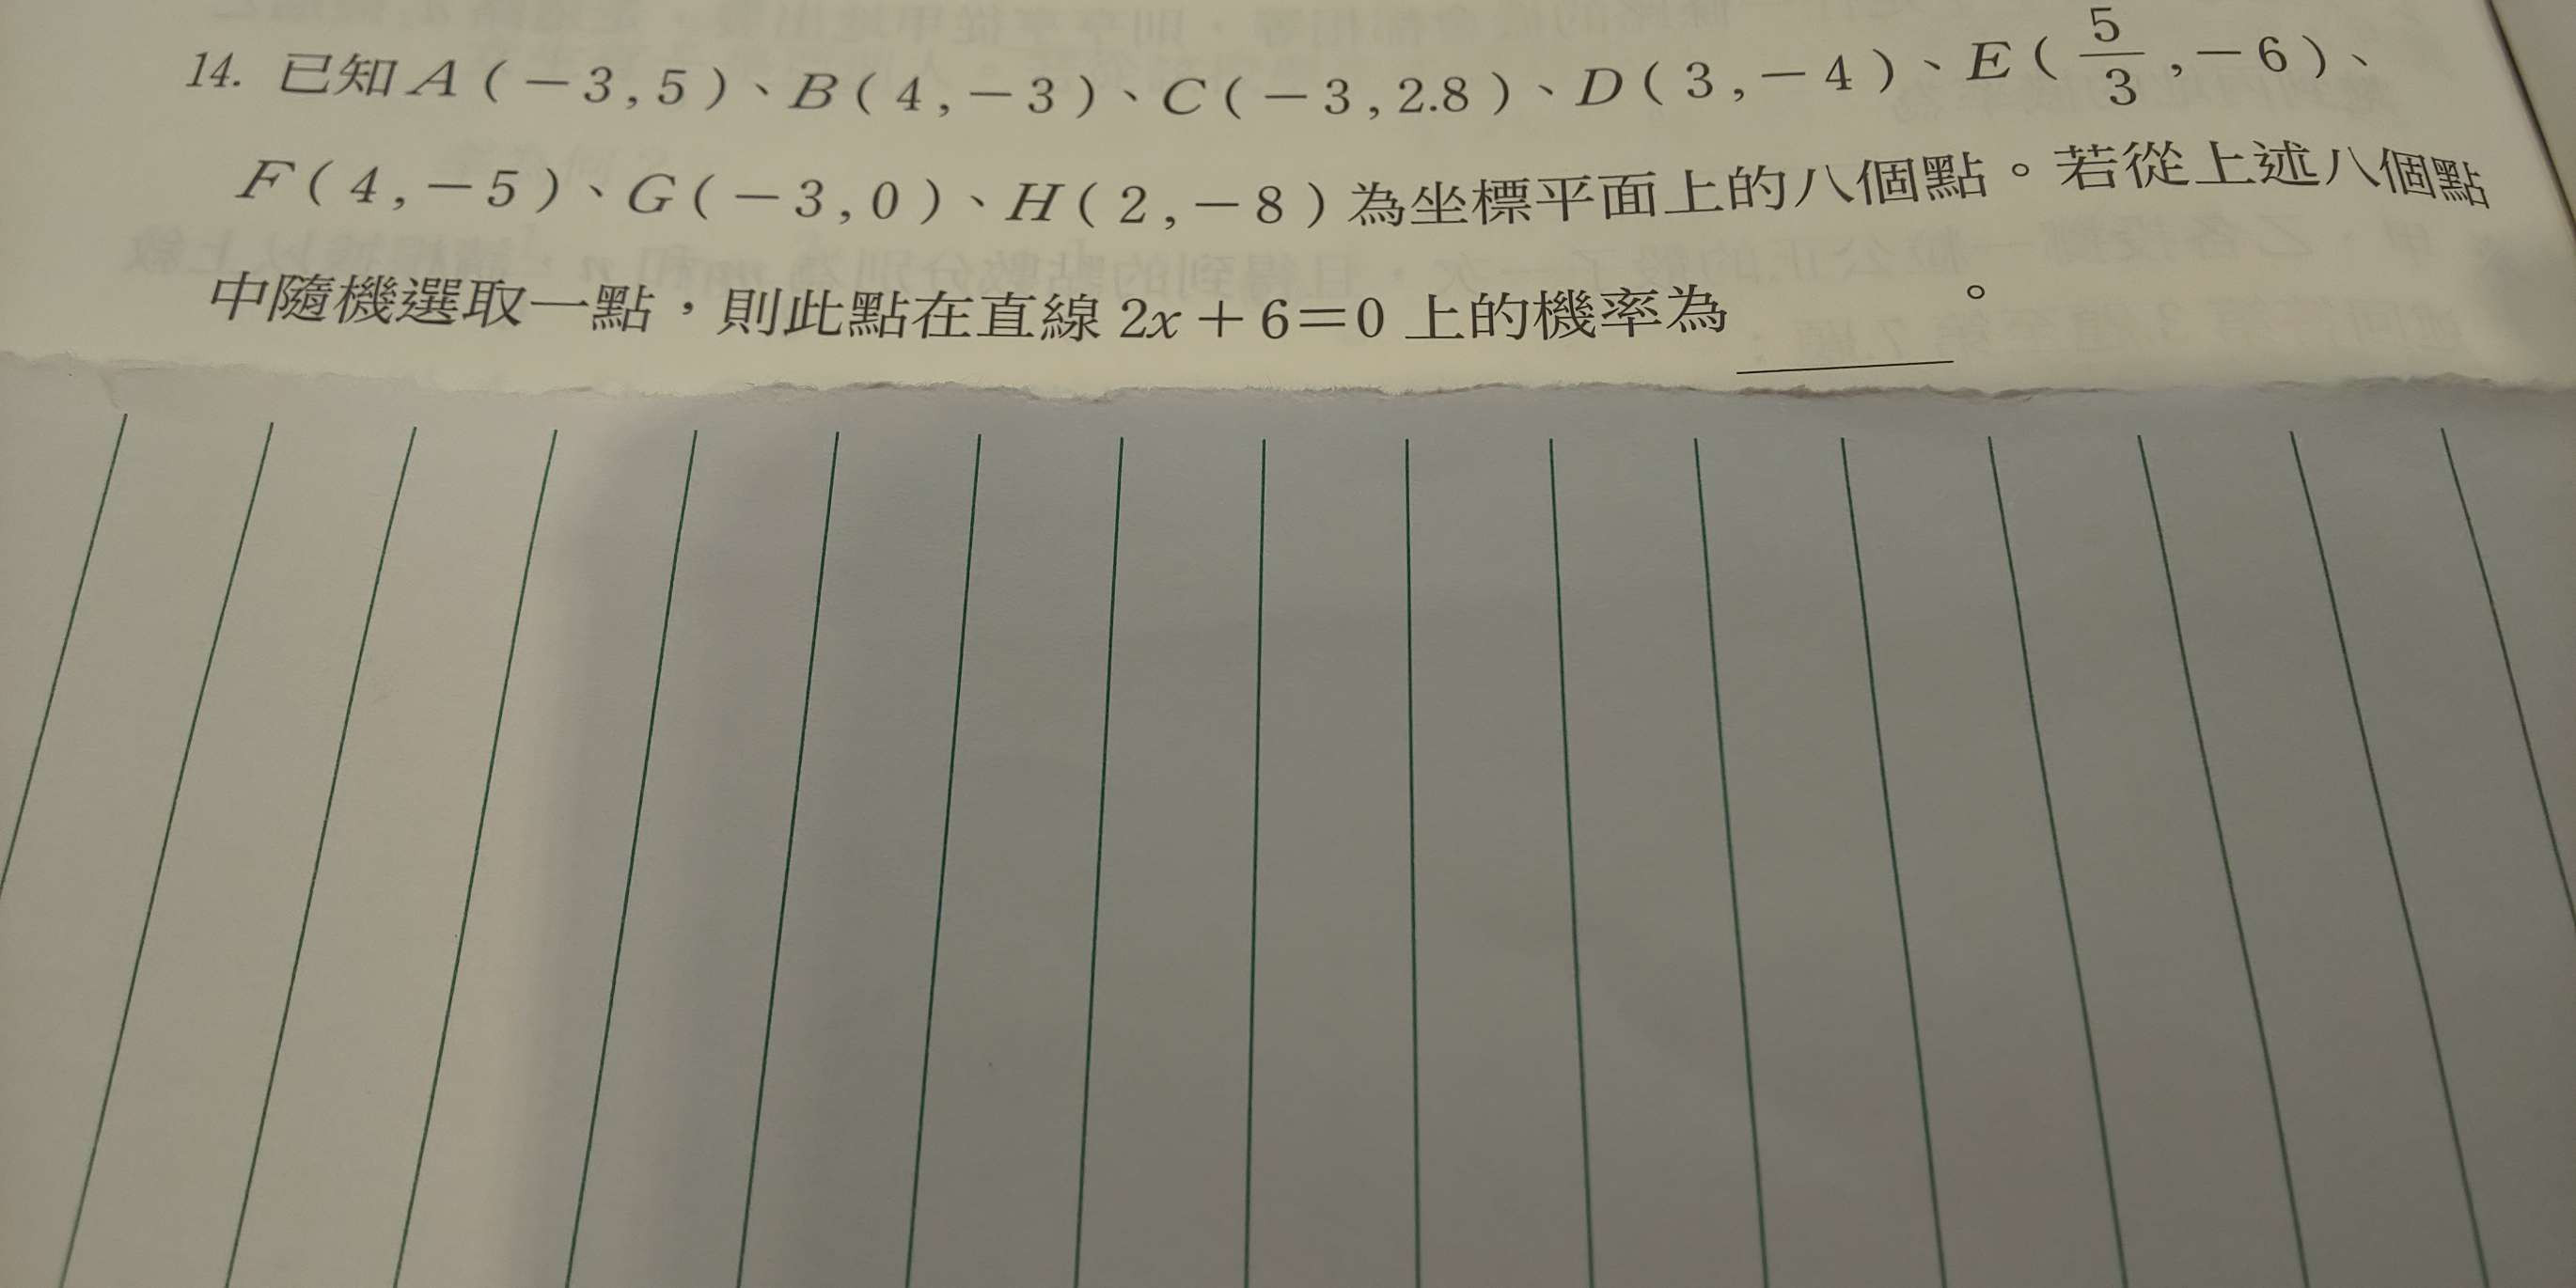 14. 已知 A(-3,5)、B(4,-3)、C(-3,2.8)、D(3,-4)、E(5/3,-6)、
F(4,-5)、G(-3,0)、H(2,-8)為坐標平面上的八個點。若從上述八個點
中隨機選取一點，則此點在直線 2x+6=0 上的機率為______。